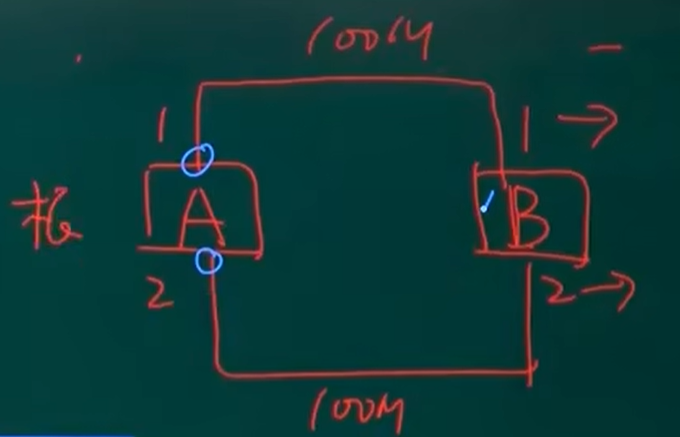 100M
1
1 →
A
B
2
2 →
100M